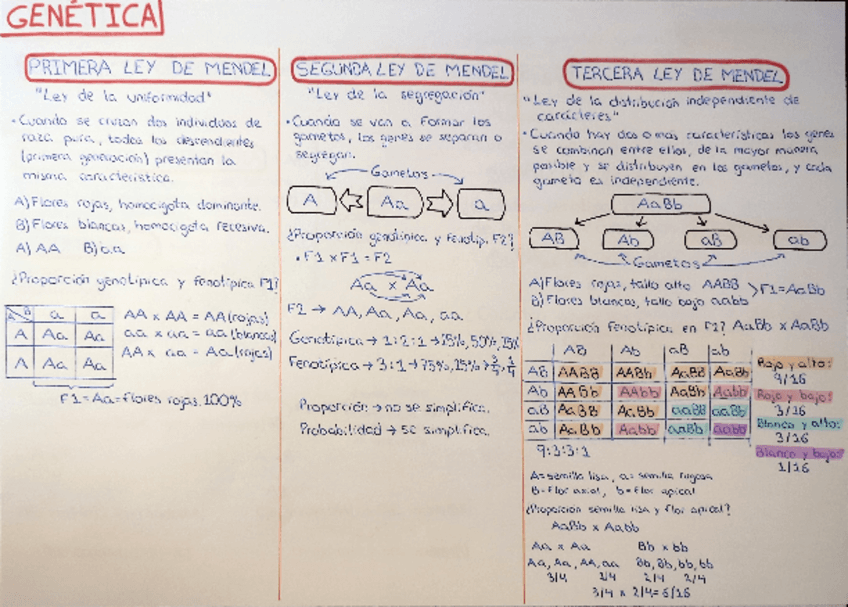 GENÉTICA
PRIMERA LEY DE MENDEL
"Ley de la uniformidad"
• Cuando se cruzan dos individuos de
raza pura, todos los descendientes
(primera generación) presentan la
misma característica.
A) Flores rojas, homocigota dominante.
B) Flores blancas, homocigota recesiva.
A) AA B) aa
¿Proporción genotípica y fenotípica F1?
a a
A Aa Aa
A Aa Aa
AA x AA = AA (rojas)
aa x aa = aa (blancas)
AA x aa = Aa (rojas)
F1 = Aa = flores rojas, 100%
SEGUNDA LEY DE MENDEL
"Ley de la segregación"
• Cuando se van a formar los
gametos, los genes se separan o
segregan.
Gametos
A Aa a
¿Proporción genotípica y fenotip. F2?
• F1 x F1 = F2
Aa x Aa
F2 → AA, Aa, Aa, aa
Genotípica → 1:2:1 → 25%, 50%, 25%
Fenotípica → 3:1 → 75%, 25% → 3/4, 1/4
Proporción → no se simplifica.
Probabilidad → se simplifica.
TERCERA LEY DE MENDEL
"Ley de la distribución independiente de
carácteres"
• Cuando hay dos o más características los genes
se combinan entre ellos, de la mayor manera
posible y se distribuyen en los gametos, y cada
gameto es independiente.
AaBb
AB Ab aB ab
Gametos
A) Flores rojas, tallo alto AABB
B) Flores blancas, tallo bajo aabb
F1 = AaBb
¿Proporción fenotípica en F2? AaBb x AaBb
AB Ab aB ab
AB AABB AABb AaBB AaBb
Ab AABb AAbb AaBb Aabb
aB AaBB AaBb aaBB aaBb
ab AaBb Aabb aaBb aabb
9:3:3:1
Rojo y alto:
9/16
Rojo y bajo:
3/16
Blanco y alto:
3/16
Blanco y bajo:
1/16
A = semilla lisa, a = semilla rugosa
B = flor axial, b = flor apical
¿Proporción semilla lisa y flor apical?
AaBb x Aabb
Aa x Aa Bb x bb
Aa, Aa, AA, aa Bb, Bb, bb, bb
3/4 1/4 2/4 2/4
3/4 x 2/4 = 6/16